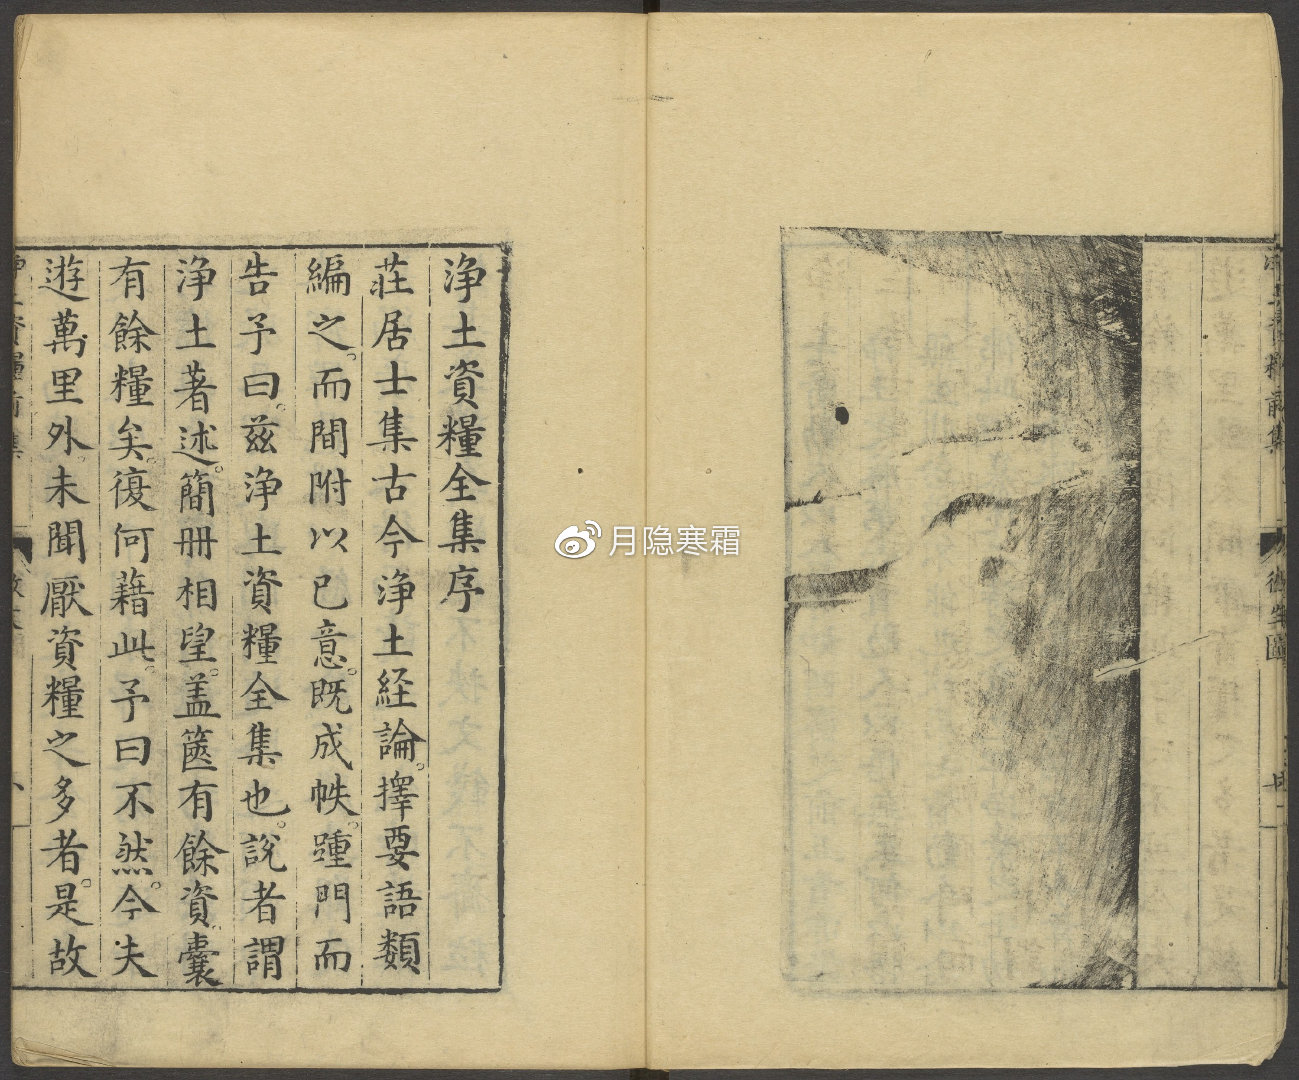 淨土資糧全集序
莊居士集古今淨土経論。擇要語類
編之。而間附以已意。既成帙。踵門而
告予曰。兹淨土資糧全集也。說者謂
淨土著述。簡冊相望。盖篋有餘資。囊
有餘糧矣。復何藉此。予曰不然。今夫
遊萬里外。未聞厭資糧之多者。是故
月隐寒霜